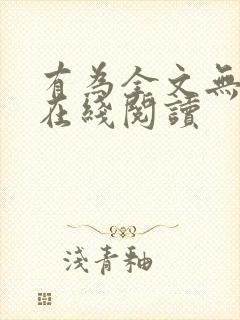 有為全文無
在綫閱讀
淺青釉